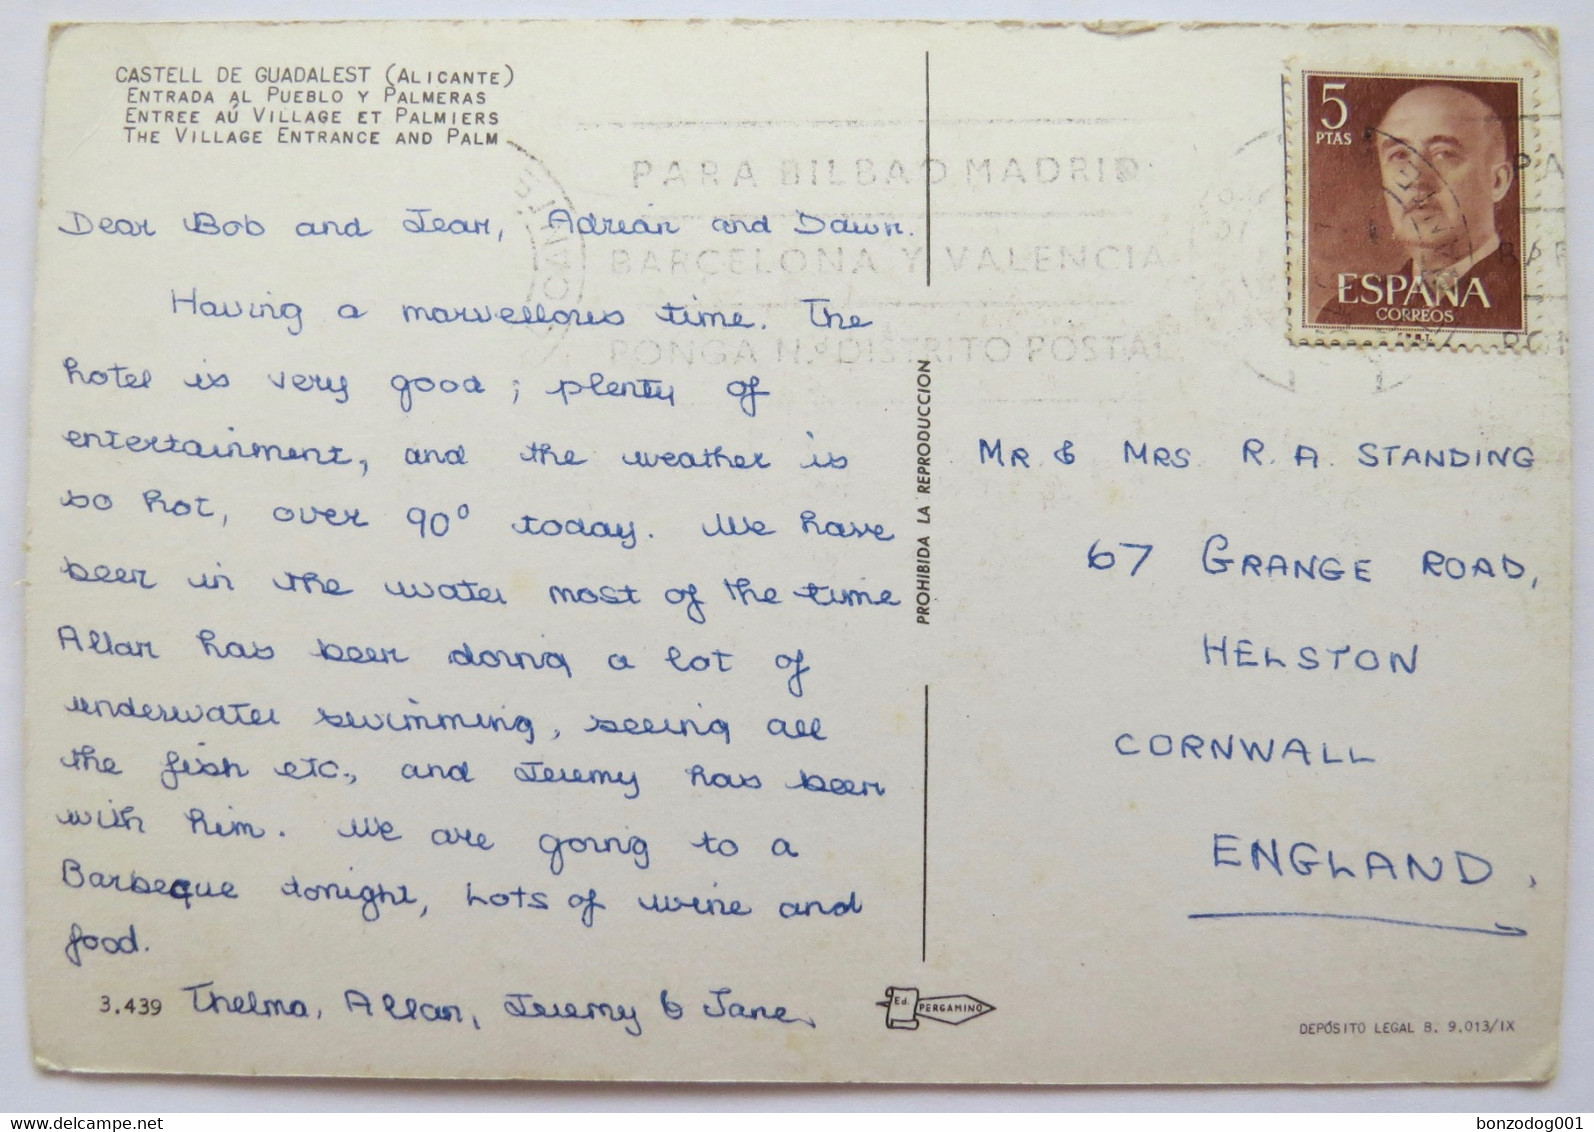 CASTELL DE GUADALEST (ALICANTE)
ENTRADA AL PUEBLO Y PALMERAS
ENTREE AÚ VILLAGE ET PALMIERS
THE VILLAGE ENTRANCE AND PALM
Dear Bob and Jean, Adrian and Dawn.
Having a marvellous time. The
hotel is very good; plenty of
entertainment, and the weather is
so hot, over 90° today. We have
been in the water most of the time
Allan has been doing a lot of
underwater swimming, seeing all
the fish etc., and Jeremy has been
with him. We are going to a
Barbeque tonight, Lots of wine and
food.
Thelma, Allan, Jeremy & Jane
3.439
PROHIBIDA LA REPRODUCCION
Ed. PERGAMINO
PARA BILBAO MADRID
BARCELONA Y VALENCIA
PONGA N.º DISTRITO POSTAL
5
PTAS
ESPAÑA
CORREOS
PA
BAR
PON
MR & MRS R. A. STANDING
67 GRANGE ROAD,
HELSTON
CORNWALL
ENGLAND.
DEPÓSITO LEGAL B. 9.013/IX
www.delcampe.net
bonzodog001